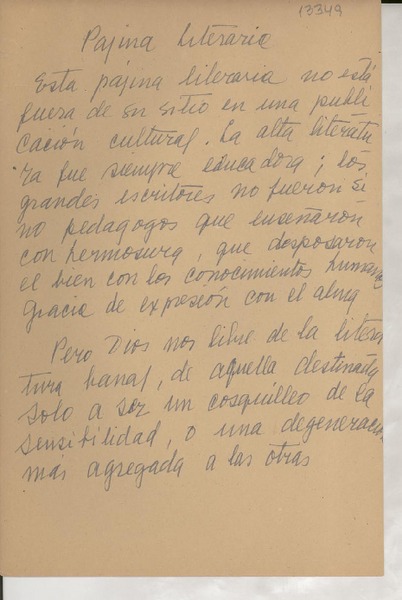 13349
Pajina Literaria
Esta página literaria no está
fuera de su sitio en una publi
cación cultural. La alta literatu
ra fue siempre educadora; los
grandes escritores no fueron si
no pedagogos que enseñaron
con hermosura, que desposaron
el bien con los conocimientos humanos
gracia de expresión con el alma
Pero Dios nos libre de la litera
tura banal, de aquella destinada
solo a ser un cosquilleo de la
sensibilidad, o una degeneración
más agregada a las otras